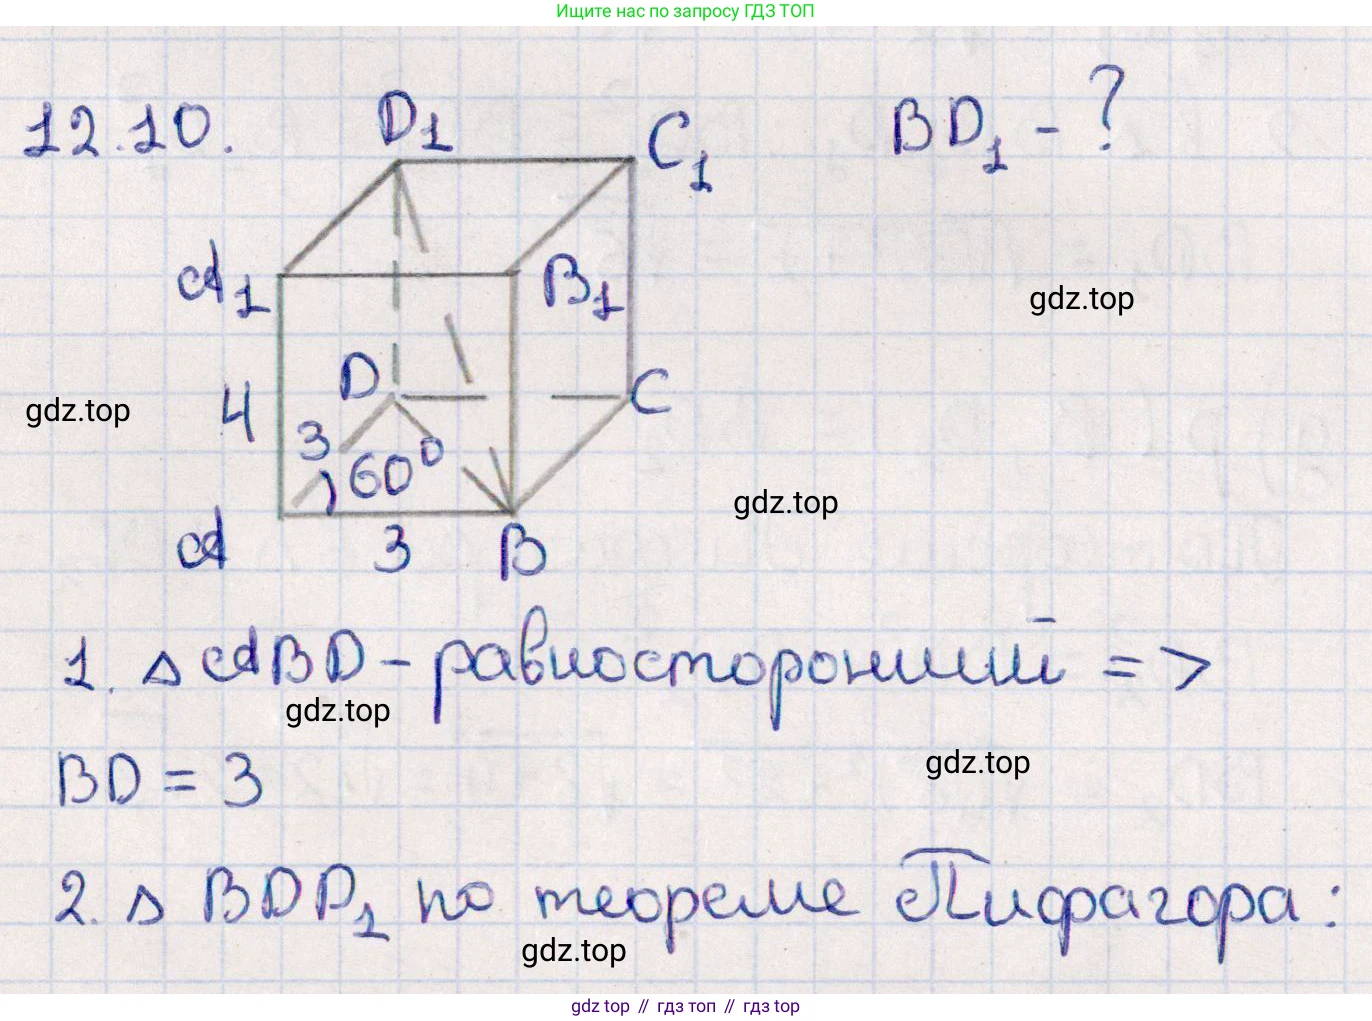 Ищите нас по запросу ГДЗ ТОП
12.10.
D₁
C₁
BD₁ - ?
A₁
B₁
gdz.top
4
D
C
gdz.top
3
60⁰
gdz.top
A
3
B
1. △ ABD - равносторонний =>
gdz.top
BD = 3
gdz.top
2. △ BDD₁ по теореме Пифагора:
gdz.top
gdz top // гдз топ // гдз top